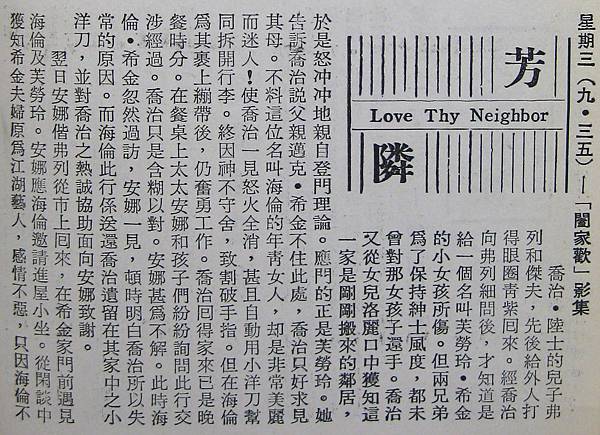 星期三(九·三五)—「闔家歡」影集
芳
Love Thy Neighbor
隣
喬治·陸士的兒子弗
列和傑夫,先後給外人打
得眼圈青紫囘來。經喬治
向弗列細問後,才知道是
給一個名叫芙勞玲·希金
的小女孩所傷。但兩兄弟
爲了保持紳士風度,都未
曾對那女孩子還手。喬治
又從女兒洛麗口中獲知這
一家是剛剛搬來的鄰居,
於是怒冲冲地親自登門理論。應門的正是芙勞玲。她
告訴喬治說父親邁克·希金不住此處,喬治只好求見
其母。不料這位名叫海倫的年青女人,却是非常美麗
而迷人!使喬治一見怒火全消,甚且自動用小洋刀幫
同拆開行李。終因神不守舍,致割破手指。但在海倫
爲其裹上繃帶後,仍奮勇工作。喬治囘得家來已是晚
餐時分。在餐桌上太太安娜和孩子們紛紛詢問此行交
涉經過。喬治只是含糊以對。安娜甚爲不解。此時海
倫·希金忽然過訪,安娜一見,頓時明白喬治所以失
常的原因。而海倫此行係送還喬治遺留在其家中之小
洋刀,並對喬治之熱誠協助面向安娜致謝。
翌日安娜偕弗列從市上囘來,在希金家門前遇見
海倫及芙勞玲。安娜應海倫邀請進屋小坐。從閑談中
獲知希金夫婦原爲江湖藝人,感情不惡,只因海倫不